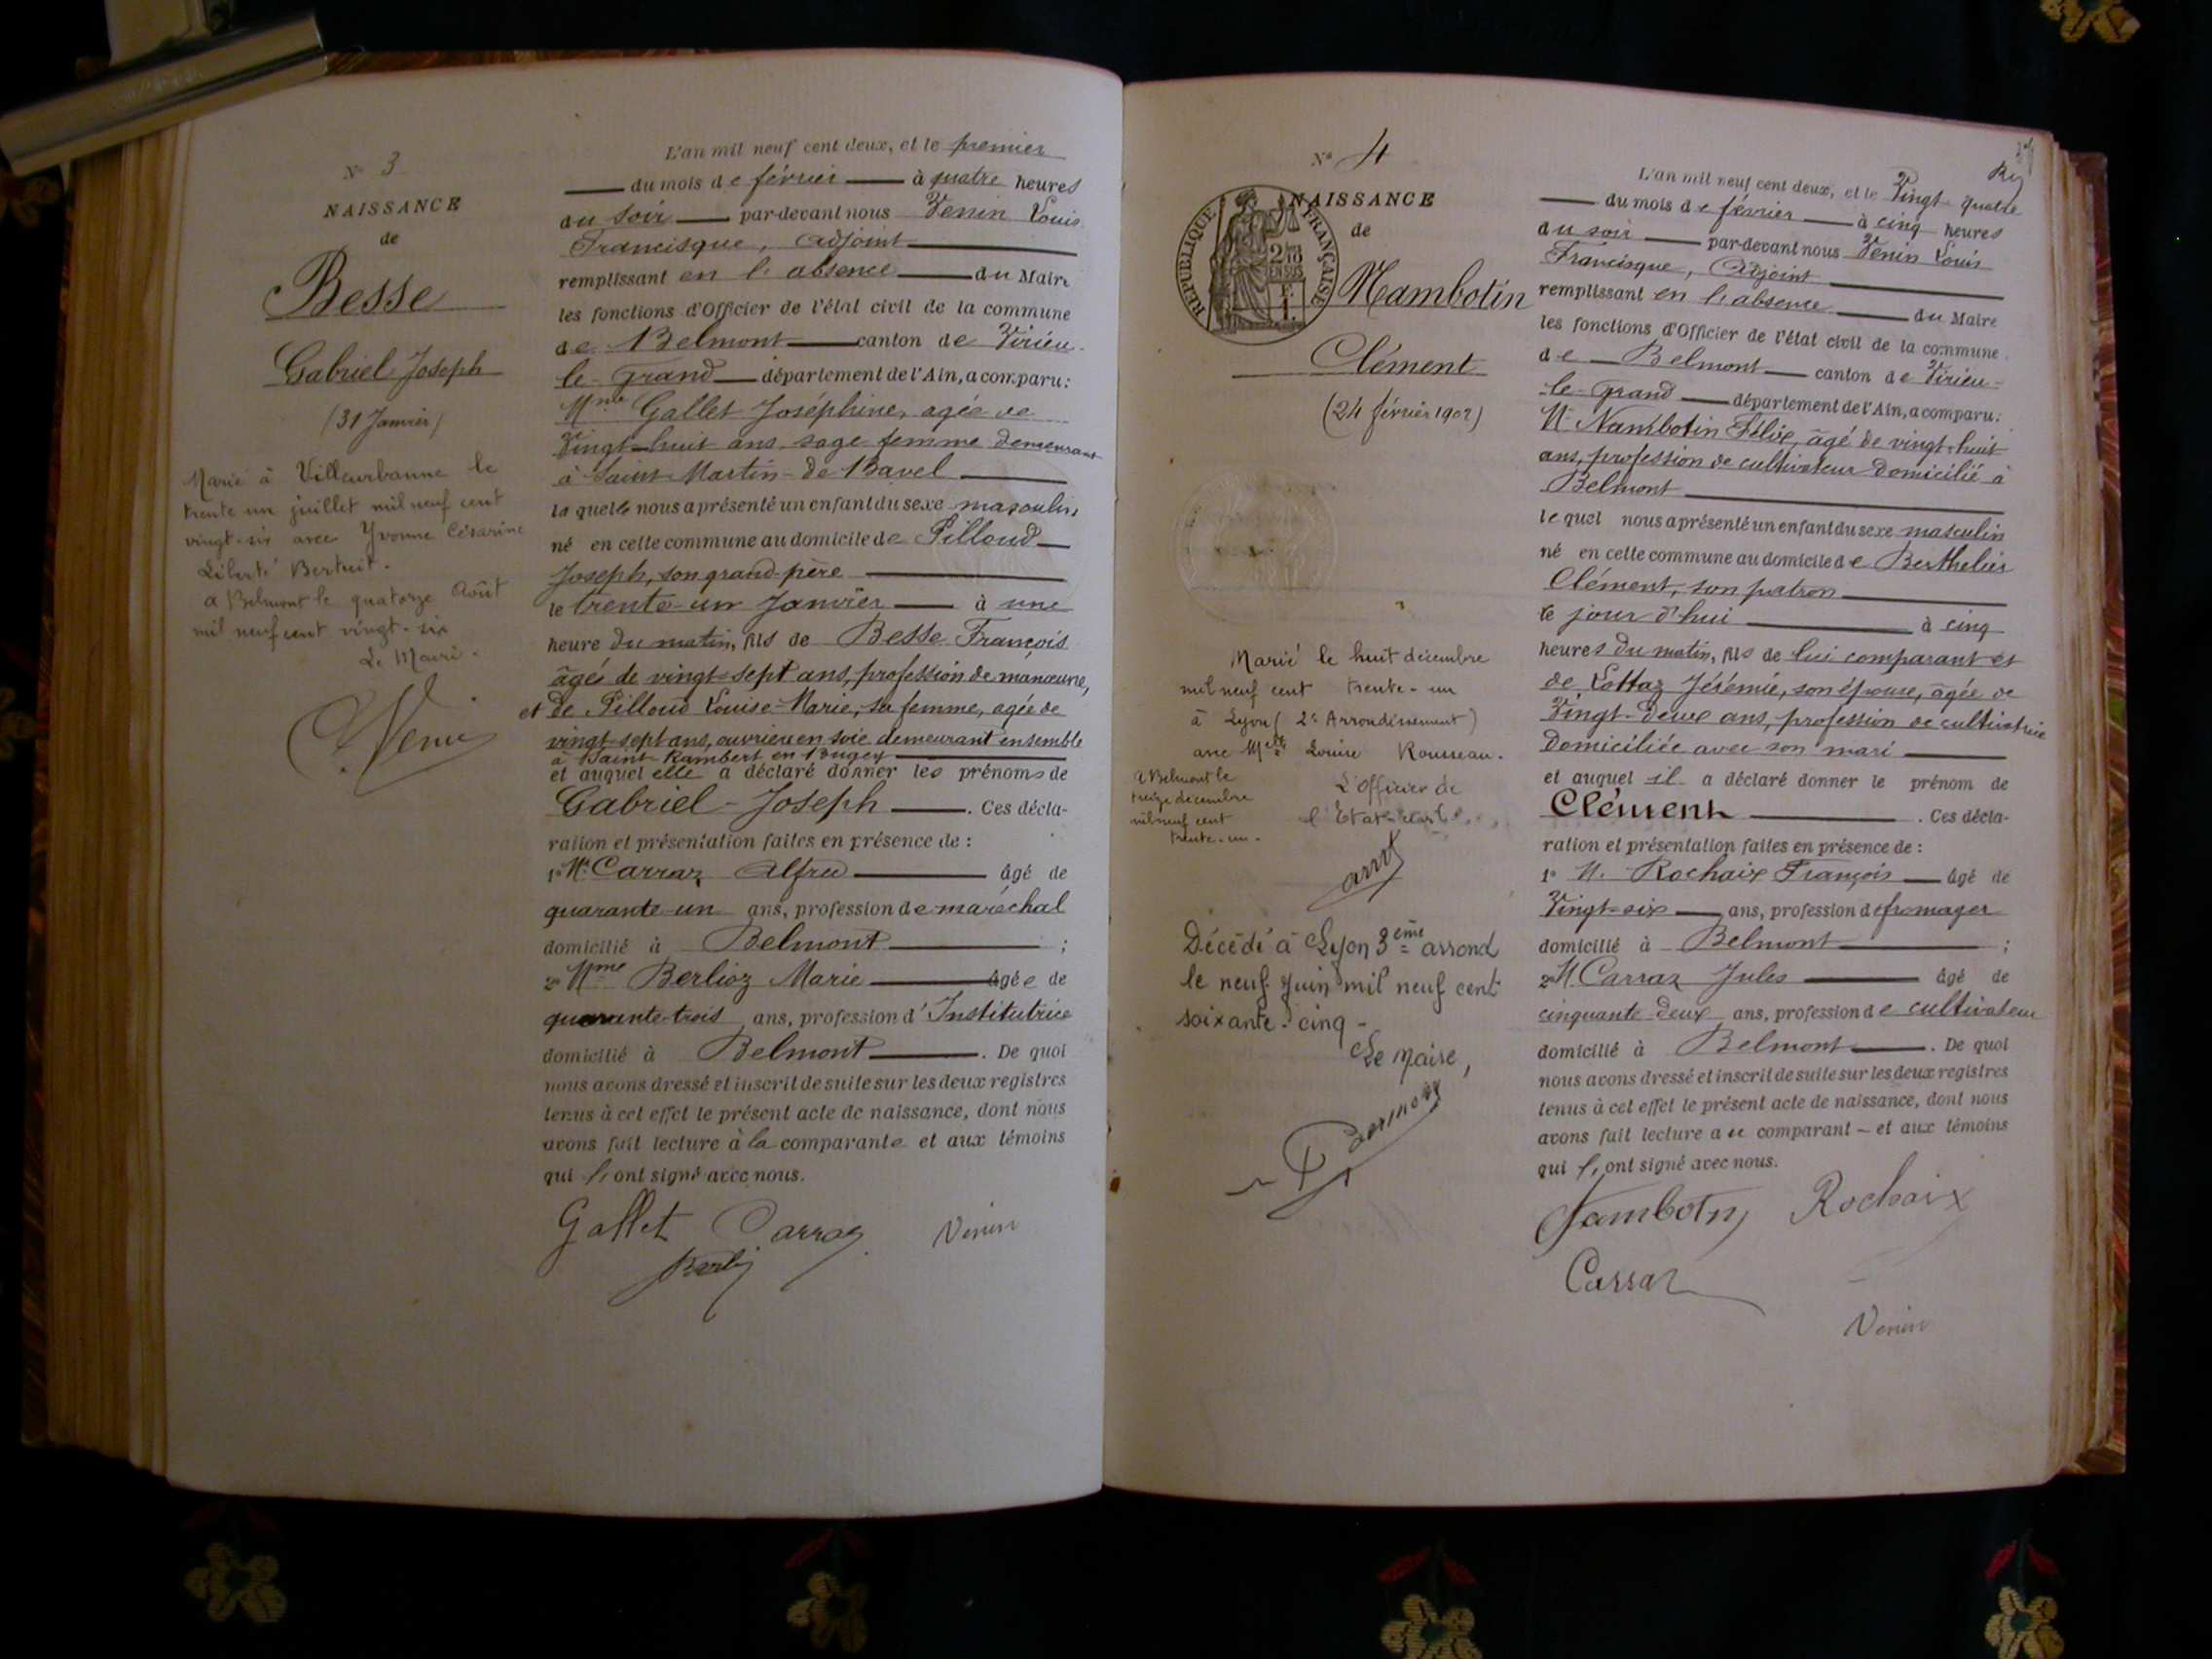 N° 3
NAISSANCE
de
Besse
Gabriel Joseph
(31 Janvier)
Marié à Villeurbanne le
trente un juillet mil neuf cent
vingt-six avec Yvonne Césarine
Liberté Bertuit.
a Belmont le quatorze Août
mil neuf cent vingt-six
Le Maire.
L'an mil neuf cent deux, et le premier
du mois de février à quatre heures
du soir par-devant nous Venin Louis
Francisque, adjoint
remplissant en l'absence du Maire
les fonctions d'Officier de l'état civil de la commune
de Belmont canton de Virieu-
le-grand département de l'Ain, a comparu:
Mme Gallet Joséphine, agée de
Vingt-huit ans sage femme demeurant
à Saint-Martin-de-Bavel
laquelle nous a présenté un enfant du sexe masculin
né en cette commune au domicile de Pilloud
Joseph, son grand-père
le trente-un Janvier à une
heure du matin, fils de Besse François
âgés de vingt-sept ans, profession de manœuvre,
et de Pilloud Louise-Marie, sa femme, agée de
vingt-sept ans, ouvrière en soie demeurant ensemble
à Saint-Rambert en Bugey
et auquel elle a déclaré donner les prénoms de
Gabriel-Joseph. Ces décla-
ration et présentation faites en présence de :
1° M. Carraz Alfred âgé de
quarante-un ans, profession de maréchal
domicilié à Belmont ;
2° Mme Berlioz Marie âgée de
quarante-trois ans, profession d'Institutrice
domicilié à Belmont. De quoi
nous avons dressé et inscrit de suite sur les deux registres
tenus à cet effet le présent acte de naissance, dont nous
avons fait lecture à la comparante et aux témoins
qui l'ont signé avec nous.
Gallet Carraz Venin
N° 4
NAISSANCE
de
REPUBLIQUE FRANÇAISE
2/10 EN SUS
Nambotin
Clément
(24 février 1902)
Marié le huit décembre
mil neuf cent trente-un
à Lyon (2e Arrondissement)
avec Melle Louise Rousseau.
a Belmont le
treize décembre
mil neuf cent
trente-un-
L'Officier de
l'Etat-civil
Décédé à Lyon 3ème arrond
le neuf Juin mil neuf cent
soixante-cinq-
Le Maire,
L'an mil neuf cent deux, et le Vingt-quatre
du mois de février à cinq heures
du soir par-devant nous Venin Louis
Francisque, Adjoint
remplissant en l'absence du Maire
les fonctions d'Officier de l'état civil de la commune
de Belmont canton de Virieu-
le-grand département de l'Ain, a comparu:
M. Nambotin Félix, âgé de vingt-huit
ans, profession de cultivateur domicilié à
Belmont
lequel nous a présenté un enfant du sexe masculin
né en cette commune au domicile de Berthelier
Clément, son patron
le jour d'hui à cinq
heures du matin, fils de lui comparant et
de Lottaz Jérémie, son épouse, âgée de
Vingt-deux ans, profession de cultivatrice
Domiciliée avec son mari
et auquel il a déclaré donner le prénom de
Clément. Ces décla-
ration et présentation faites en présence de :
1° M. Rochaix François âgé de
Vingt-six ans, profession de fromager
domicilié à Belmont ;
2° M. Carraz Jules âgé de
cinquante-deux ans, profession de cultivateur
domicilié à Belmont. De quoi
nous avons dressé et inscrit de suite sur les deux registres
tenus à cet effet le présent acte de naissance, dont nous
avons fait lecture au comparant - et aux témoins
qui l'ont signé avec nous.
Nambotin Rochaix
Carraz
Venin